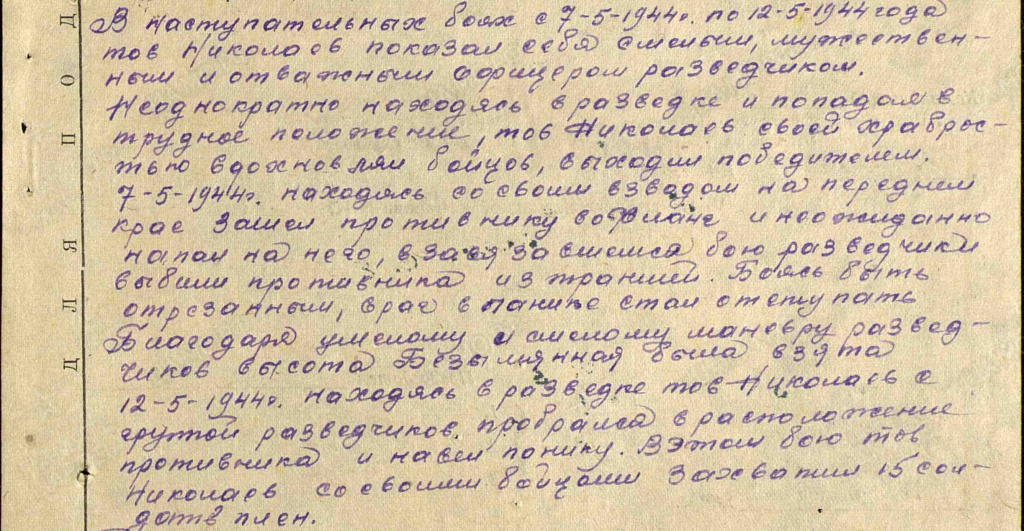 В наступательных боях с 7-5-1944г. по 12-5-1944 года
тов Николаев показал себя смелым, мужествен-
ным и отважным офицером разведчиком.
Неоднократно находясь в разведке и попадая в
трудное положение, тов Николаев своей храброс-
тью вдохновлял бойцов, выходил победителем.
7-5-1944г. находясь со своим взводом на переднем
крае зашел противнику во фланг и неожиданно
напал на него, в завязавшемся бою разведчики
выбили противника из траншей. Боясь быть
отрезанным, враг в панике стал отступать
Благодаря умелому и смелому маневру развед-
чиков высота Безымянная была взята
12-5-1944г. находясь в разведке тов Николаев с
группой разведчиков пробрался в расположение
противника и навел панику. В этом бою тов
Николаев со своими бойцами захватил 15 сол-
дат в плен.
ДЛЯ ПОД